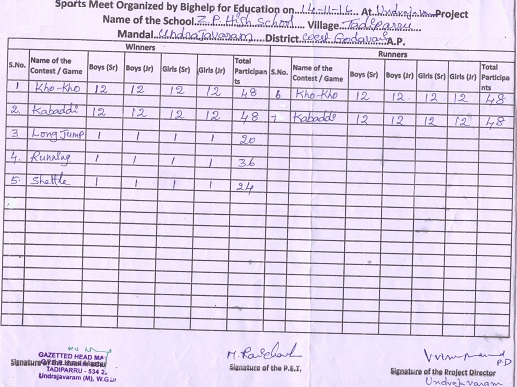 Sports Meet Organized by Bighelp for Education on 14-11-16 At Undrajavaram Project
Name of the School Z.P. High School Village Tadiparru
Mandal Undrajavaram District West Godavari A.P.
Winners Runners
S.No. Name of the Contest / Game Boys (Sr) Boys (Jr) Girls (Sr) Girls (Jr) Total Participants S.No. Name of the Contest / Game Boys (Sr) Boys (Jr) Girls (Sr) Girls (Jr) Total Participants
1 Kho-Kho 12 12 12 12 48 6 Kho-Kho 12 12 12 12 48
2. Kabaddi 12 12 12 12 48 7 Kabaddi 12 12 12 12 48
3. Long Jump 1 1 1 1 20
4. Running 1 1 1 1 36
5. Shettle 1 1 1 1 24
GAZETTED HEAD MA
Signature of the Head Master
TADIPARRU - 534 2
Undrajavaram (M), W.G.Dt
Signature of the P.E.T.
PD
Signature of the Project Director
Undrajavaram